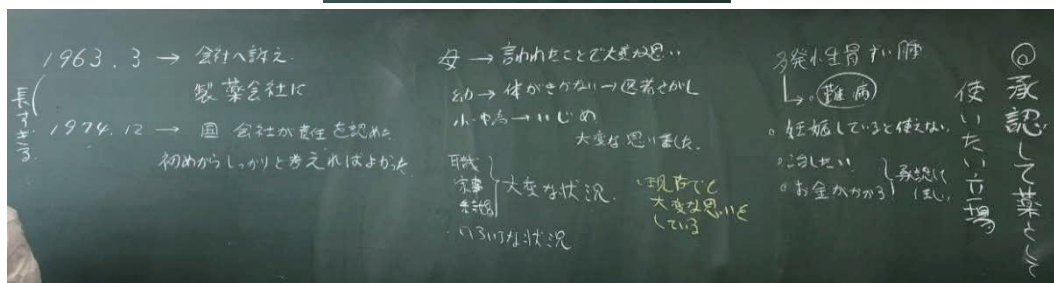 ◎承認して薬として
使いたい立場
多発性骨ずい腫
↳・難病
・妊娠していると使えない
・治したい
・お金がかかる
承認してほしい
母→言われたことで大変な思い
幼→体がきかない→医者さがし
小・中・高→いじめ
大変な思いをした。
職
家事
結婚
大変な状況
・いろいろな状況
・現在でも
大変な思いを
している
1963.3→会社へ訴え
製薬会社に
長すぎる
1974.12→国 会社が責任を認めた
初めからしっかりと考えればよかった